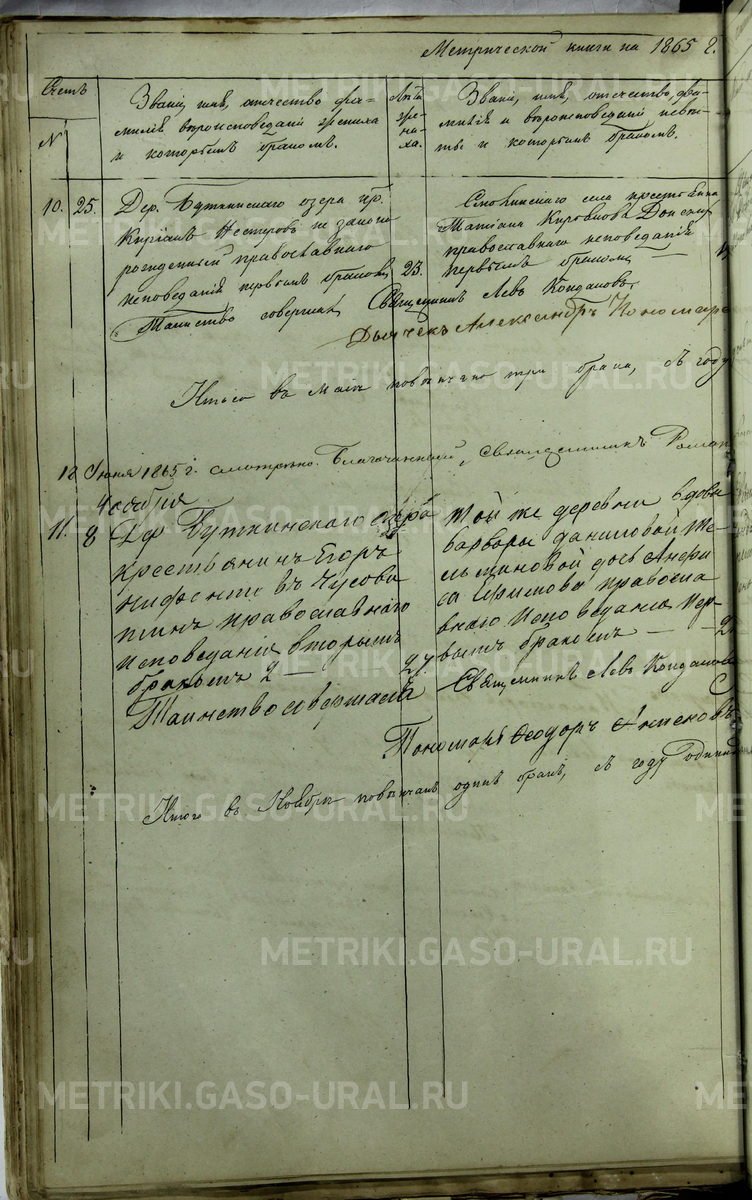 Метрической книги на 1865 г.
Счетъ
№
Званіе, имя, отчество фа-
милія вѣроисповѣданіе жениха
и которымъ бракомъ.
Лѣта
же-
ни-
ха.
Званіе, имя, отчество, фа-
милія и вѣроисповѣданіе невѣс-
ты и которымъ бракомъ.
10. 25. Дер. Буткинскаго озера кр.
Кирилъ Нестеровъ не законно
рожденный православнаго
исповѣданія первымъ бракомъ
23.
села крестьянина
Татіана
православнаго исповѣданія
первымъ бракомъ
Таинство совершалъ Священникъ Левъ Кондаковъ
Дьячекъ Александръ Пономаре
Итого въ Маѣ повѣнчано три брака, съ году
18 Іюня 1865 г. смотрѣно. Благочинный, Священникъ Роман
Ноября
11. 8 Дер Буткинскаго озера
крестьянинъ Егоръ
въ Чусови
тинъ православнаго
исповѣданія вторымъ
бракомъ 2
27.
Той же деревни вдовы
варвары даниловой
дочь Анфи
са Ефимова правосла
внаго исповѣданія пер-
вымъ бракомъ — 2
Таинство совершалъ Священникъ Левъ Кондаковъ
Пономарь Ѳеодоръ Аксеновъ
Итого въ Ноябрѣ повѣнчанъ одинъ бракъ, съ году
METRIKI.GASO-URAL.RU